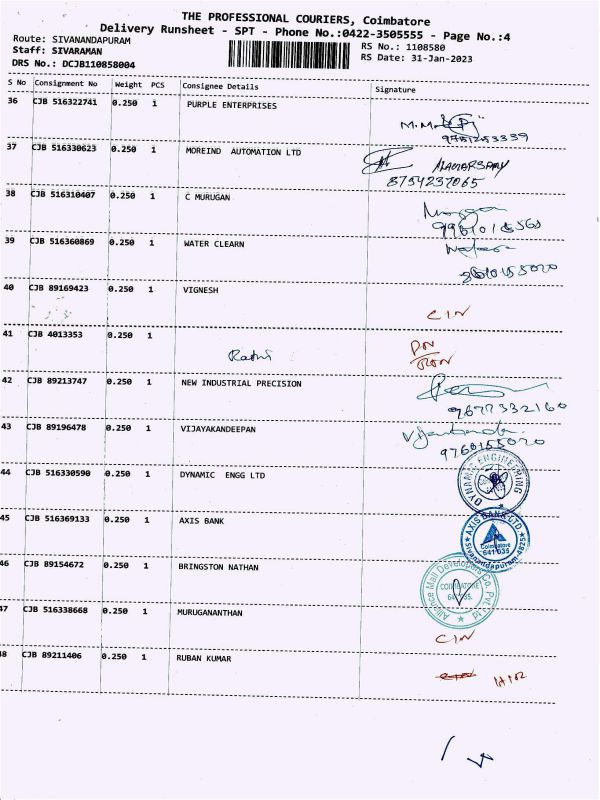 THE PROFESSIONAL COURIERS, Coimbatore
Delivery Runsheet - SPT - Phone No.:0422-3505555 - Page No.:4
Route: SIVANANDAPURAM
RS No.: 1108580
Staff: SIVARAMAN
RS Date: 31-Jan-2023
DRS No.: DCJB110858004
S No Consignment No Weight PCS Consignee Details Signature
36 CJB 516322741 0.250 1 PURPLE ENTERPRISES
37 CJB 516330623 0.250 1 MOREIND AUTOMATION LTD
8754237065
38 CJB 516310407 0.250 1 C MURUGAN
39 CJB 516360869 0.250 1 WATER CLEARN
40 CJB 89169423 0.250 1 VIGNESH
CIN
41 CJB 4013353 0.250 1
Rathi
42 CJB 89213747 0.250 1 NEW INDUSTRIAL PRECISION
9677332160
43 CJB 89196478 0.250 1 VIJAYAKANDEEPAN
9760155020
44 CJB 516330590 0.250 1 DYNAMIC ENGG LTD
DYNAMIC ENGINEERING
45 CJB 516369133 0.250 1 AXIS BANK
AXIS BANK LTD
Coimbatore
641 035
Sivanandapuram 4825
46 CJB 89154672 0.250 1 BRINGSTON NATHAN
Alliance Mall Developers Co. Pvt. Ltd
COIMBATORE
47 CJB 516338668 0.250 1 MURUGANANTHAN
CIN
48 CJB 89211406 0.250 1 RUBAN KUMAR